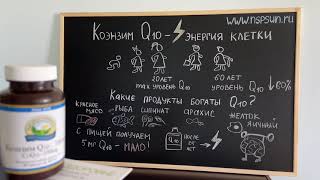 www.nspsun.ru
Коэнзим Q10 - энергия клетки
20 лет
max уровень Q10
60 лет
уровень Q10 ↓ 60%
Какие продукты богаты Q10?
красное мясо
рыба
шпинат
арахис
желток яичный
С пищей получаем
5 мг Q10 - мало!
Q10
после
лет
Коэнзим Q10